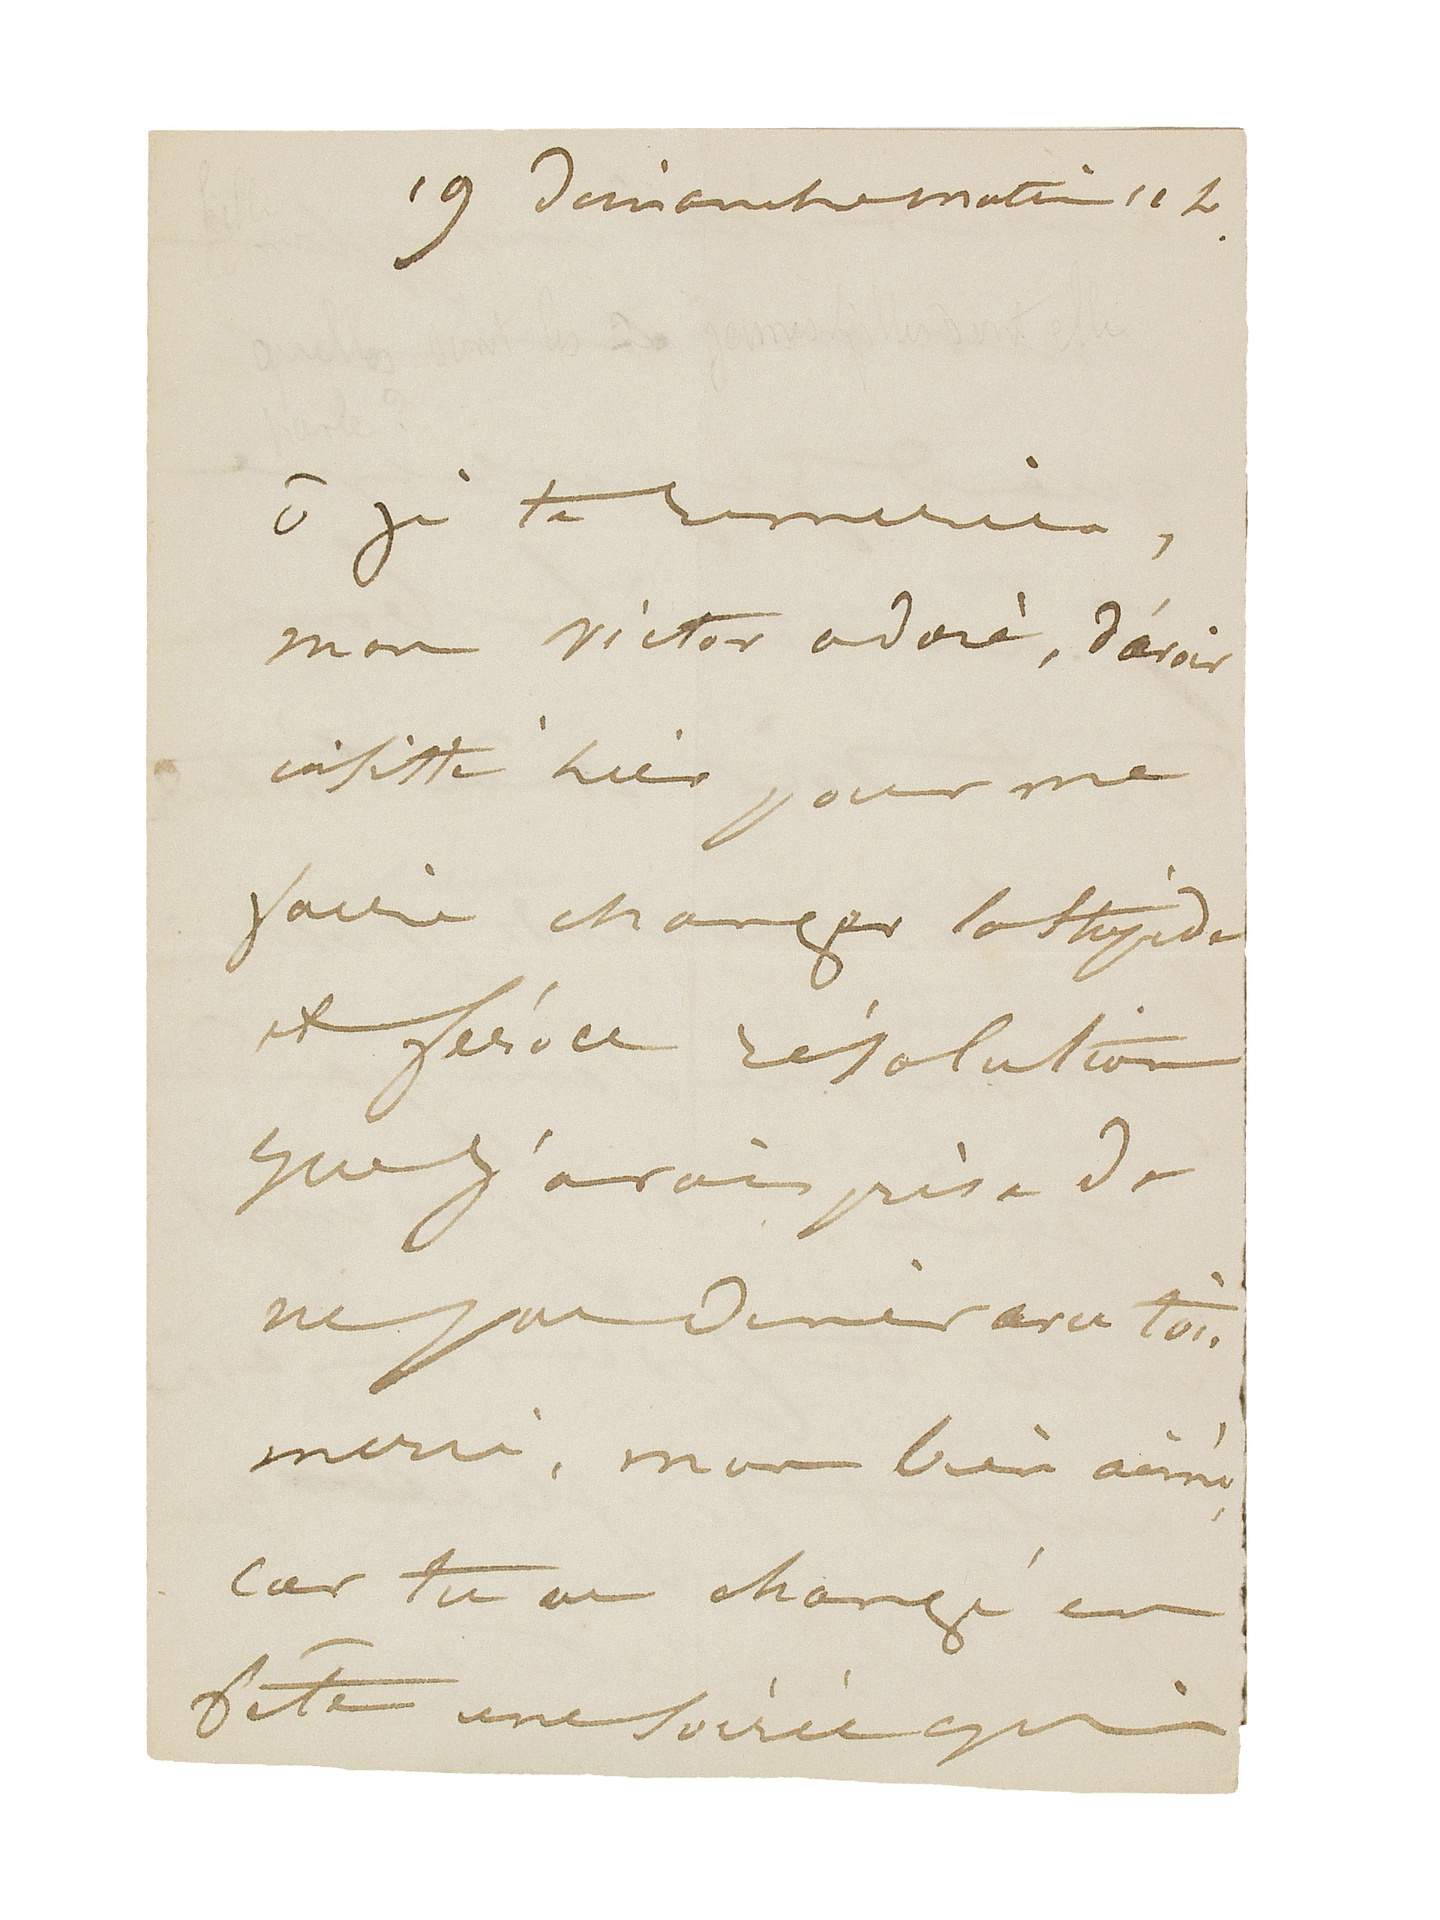 19 Dimanche matin 11 h.
ô je te remercie,
mon victor adoré, d'avoir
insisté hier pour me
faire changer la stupide
et féroce résolution
que j'avais prise de
ne pas diner avec toi.
merci, mon bien aimé,
car tu as changé en
fête une soirée qui